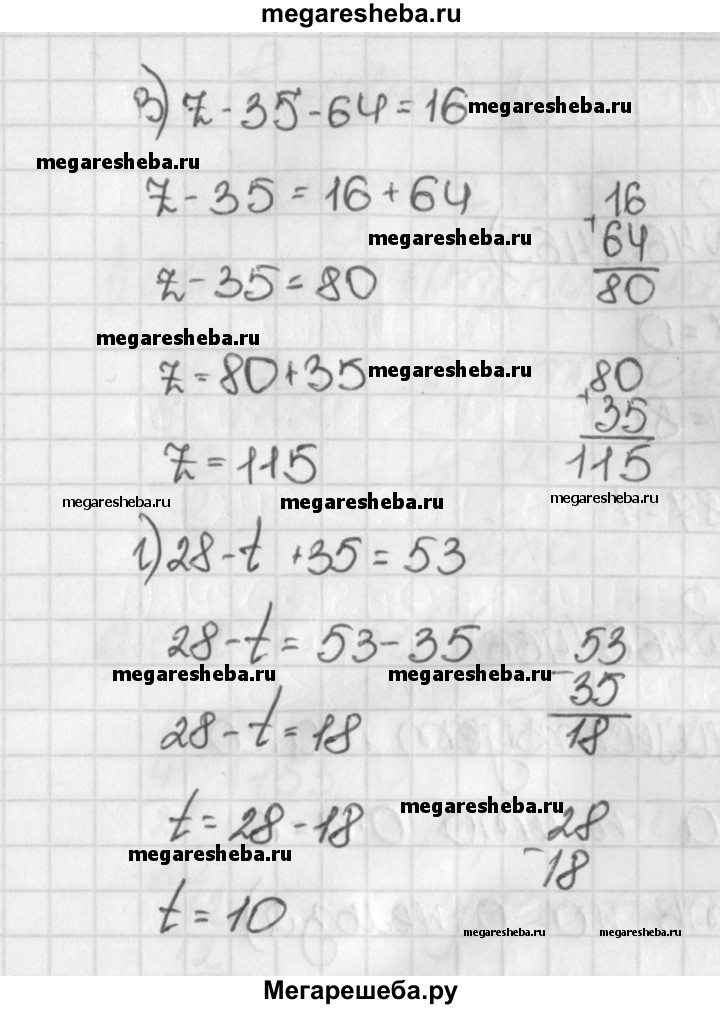 megaresheba.ru
в) z - 35 - 64 = 16 megaresheba.ru
megaresheba.ru
z - 35 = 16 + 64
16
+ 64
80
megaresheba.ru
z - 35 = 80
megaresheba.ru
z = 80 + 35 megaresheba.ru
80
+ 35
115
z = 115
megaresheba.ru megaresheba.ru megaresheba.ru
г) 28 - t + 35 = 53
28 - t = 53 - 35
53
- 35
18
megaresheba.ru megaresheba.ru
28 - t = 18
megaresheba.ru
t = 28 - 18
28
- 18
megaresheba.ru
t = 10
megaresheba.ru megaresheba.ru
Мегарешеба.ру